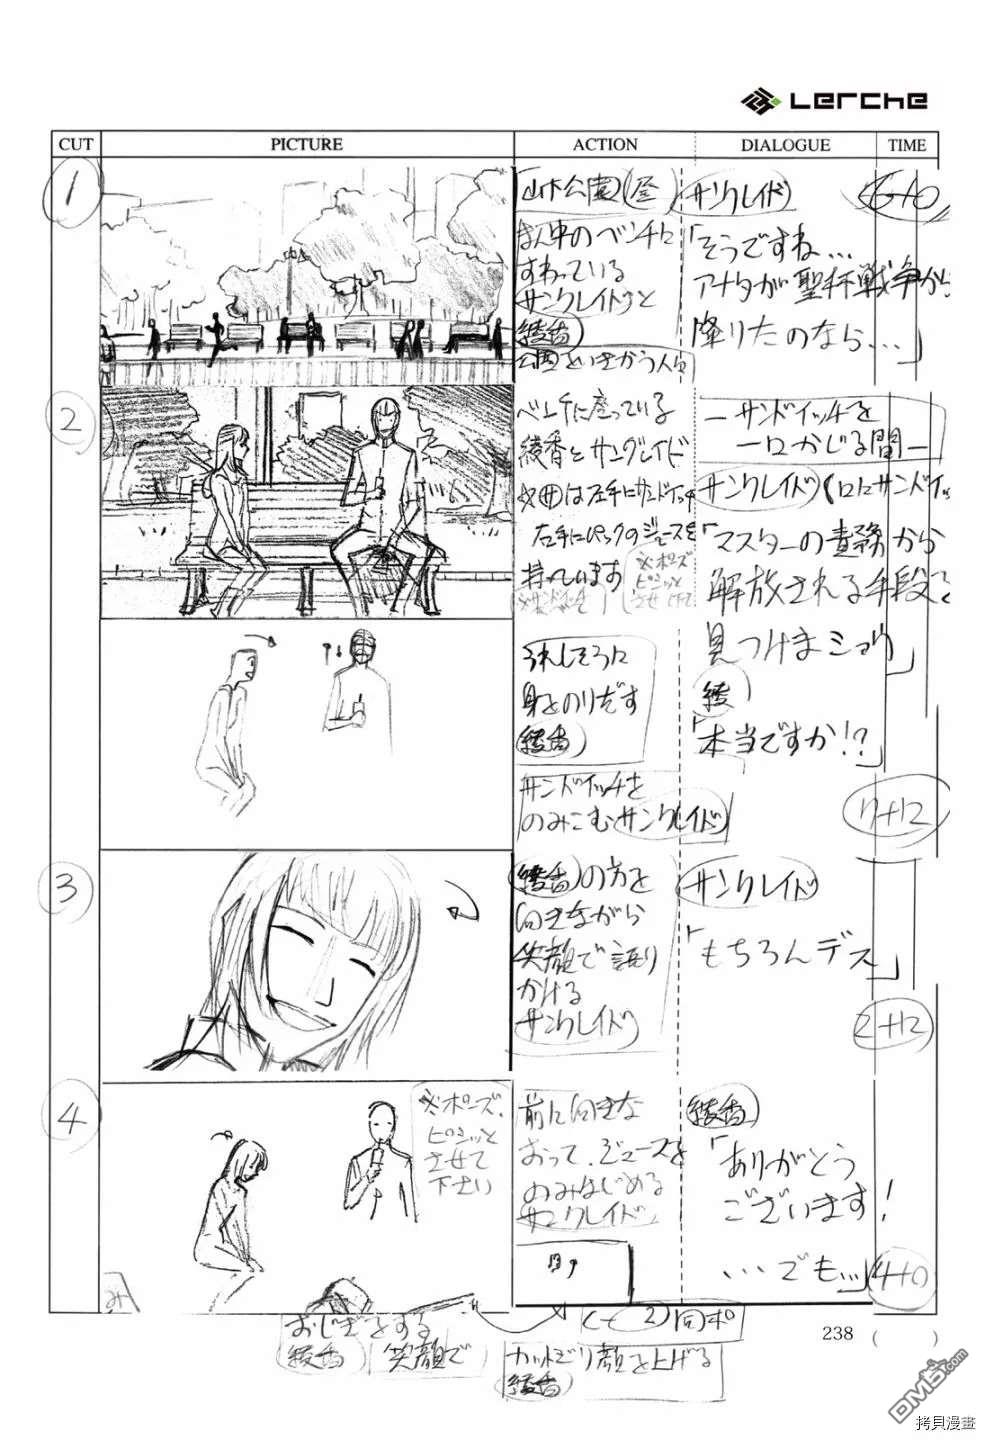 Lerche
CUT PICTURE ACTION DIALOGUE TIME
1
公園(昼)
まん中のベンチに
すわっている
サンクレイドと
綾香
公園をいきかう人々
サンクレイド
「そうですね...
アナタが聖杯戦争から
降りたのなら...」
6+0
2
ベンチに座っている
綾香とサンクレイド
左手にパックのジュースを
持っています
※ポーズ
ピシッと
させて
ーサンドイッチを
一口かじる間ー
サンクレイド
「マスターの責務から
解放される手段を
見つけまショウ」
うれしそうに
身をのりだす
綾香
綾
「本当ですか!?」
サンドイッチを
のみこむサンクレイド
7+12
3
綾香の方を
向きながら
笑顔で語り
かける
サンクレイド
サンクレイド
「もちろんデス」
2+12
4
※ポーズ、
ピシッと
させて
下さい
前に向きな
おって、ジュースを
のみはじめる
サンクレイド
綾香
「ありがとう
ございます!
...でも...」
4+0
おじぎをする
綾香 笑顔で
(c-2)同ポ
カットじり顔を上げる
綾香
238 ( )
DM5.com
拷貝漫畫